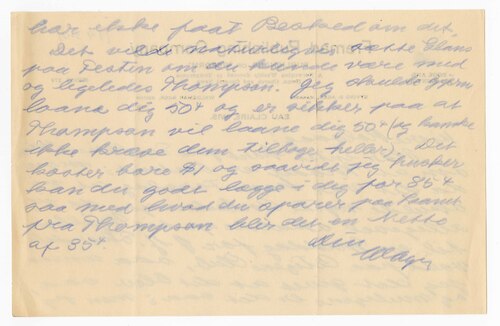 har ikke faat Besked om det.
Det vilde naturligvis sætte Glans
paa Festen om du kunde være med
og ligeledes Thompson. Jeg skulde gjerne
laane dig 50¢ og er sikker paa at
Thompson vil laane dig 50¢ (og kanske
ikke kræve dem tilbage heller). Det
koster bare $1 og saavidt jeg husker
kan du godt lægge i dig for 85¢
saa med hvad du sparer paa
fra Thompson blir det en Netto
af 35¢.
Din